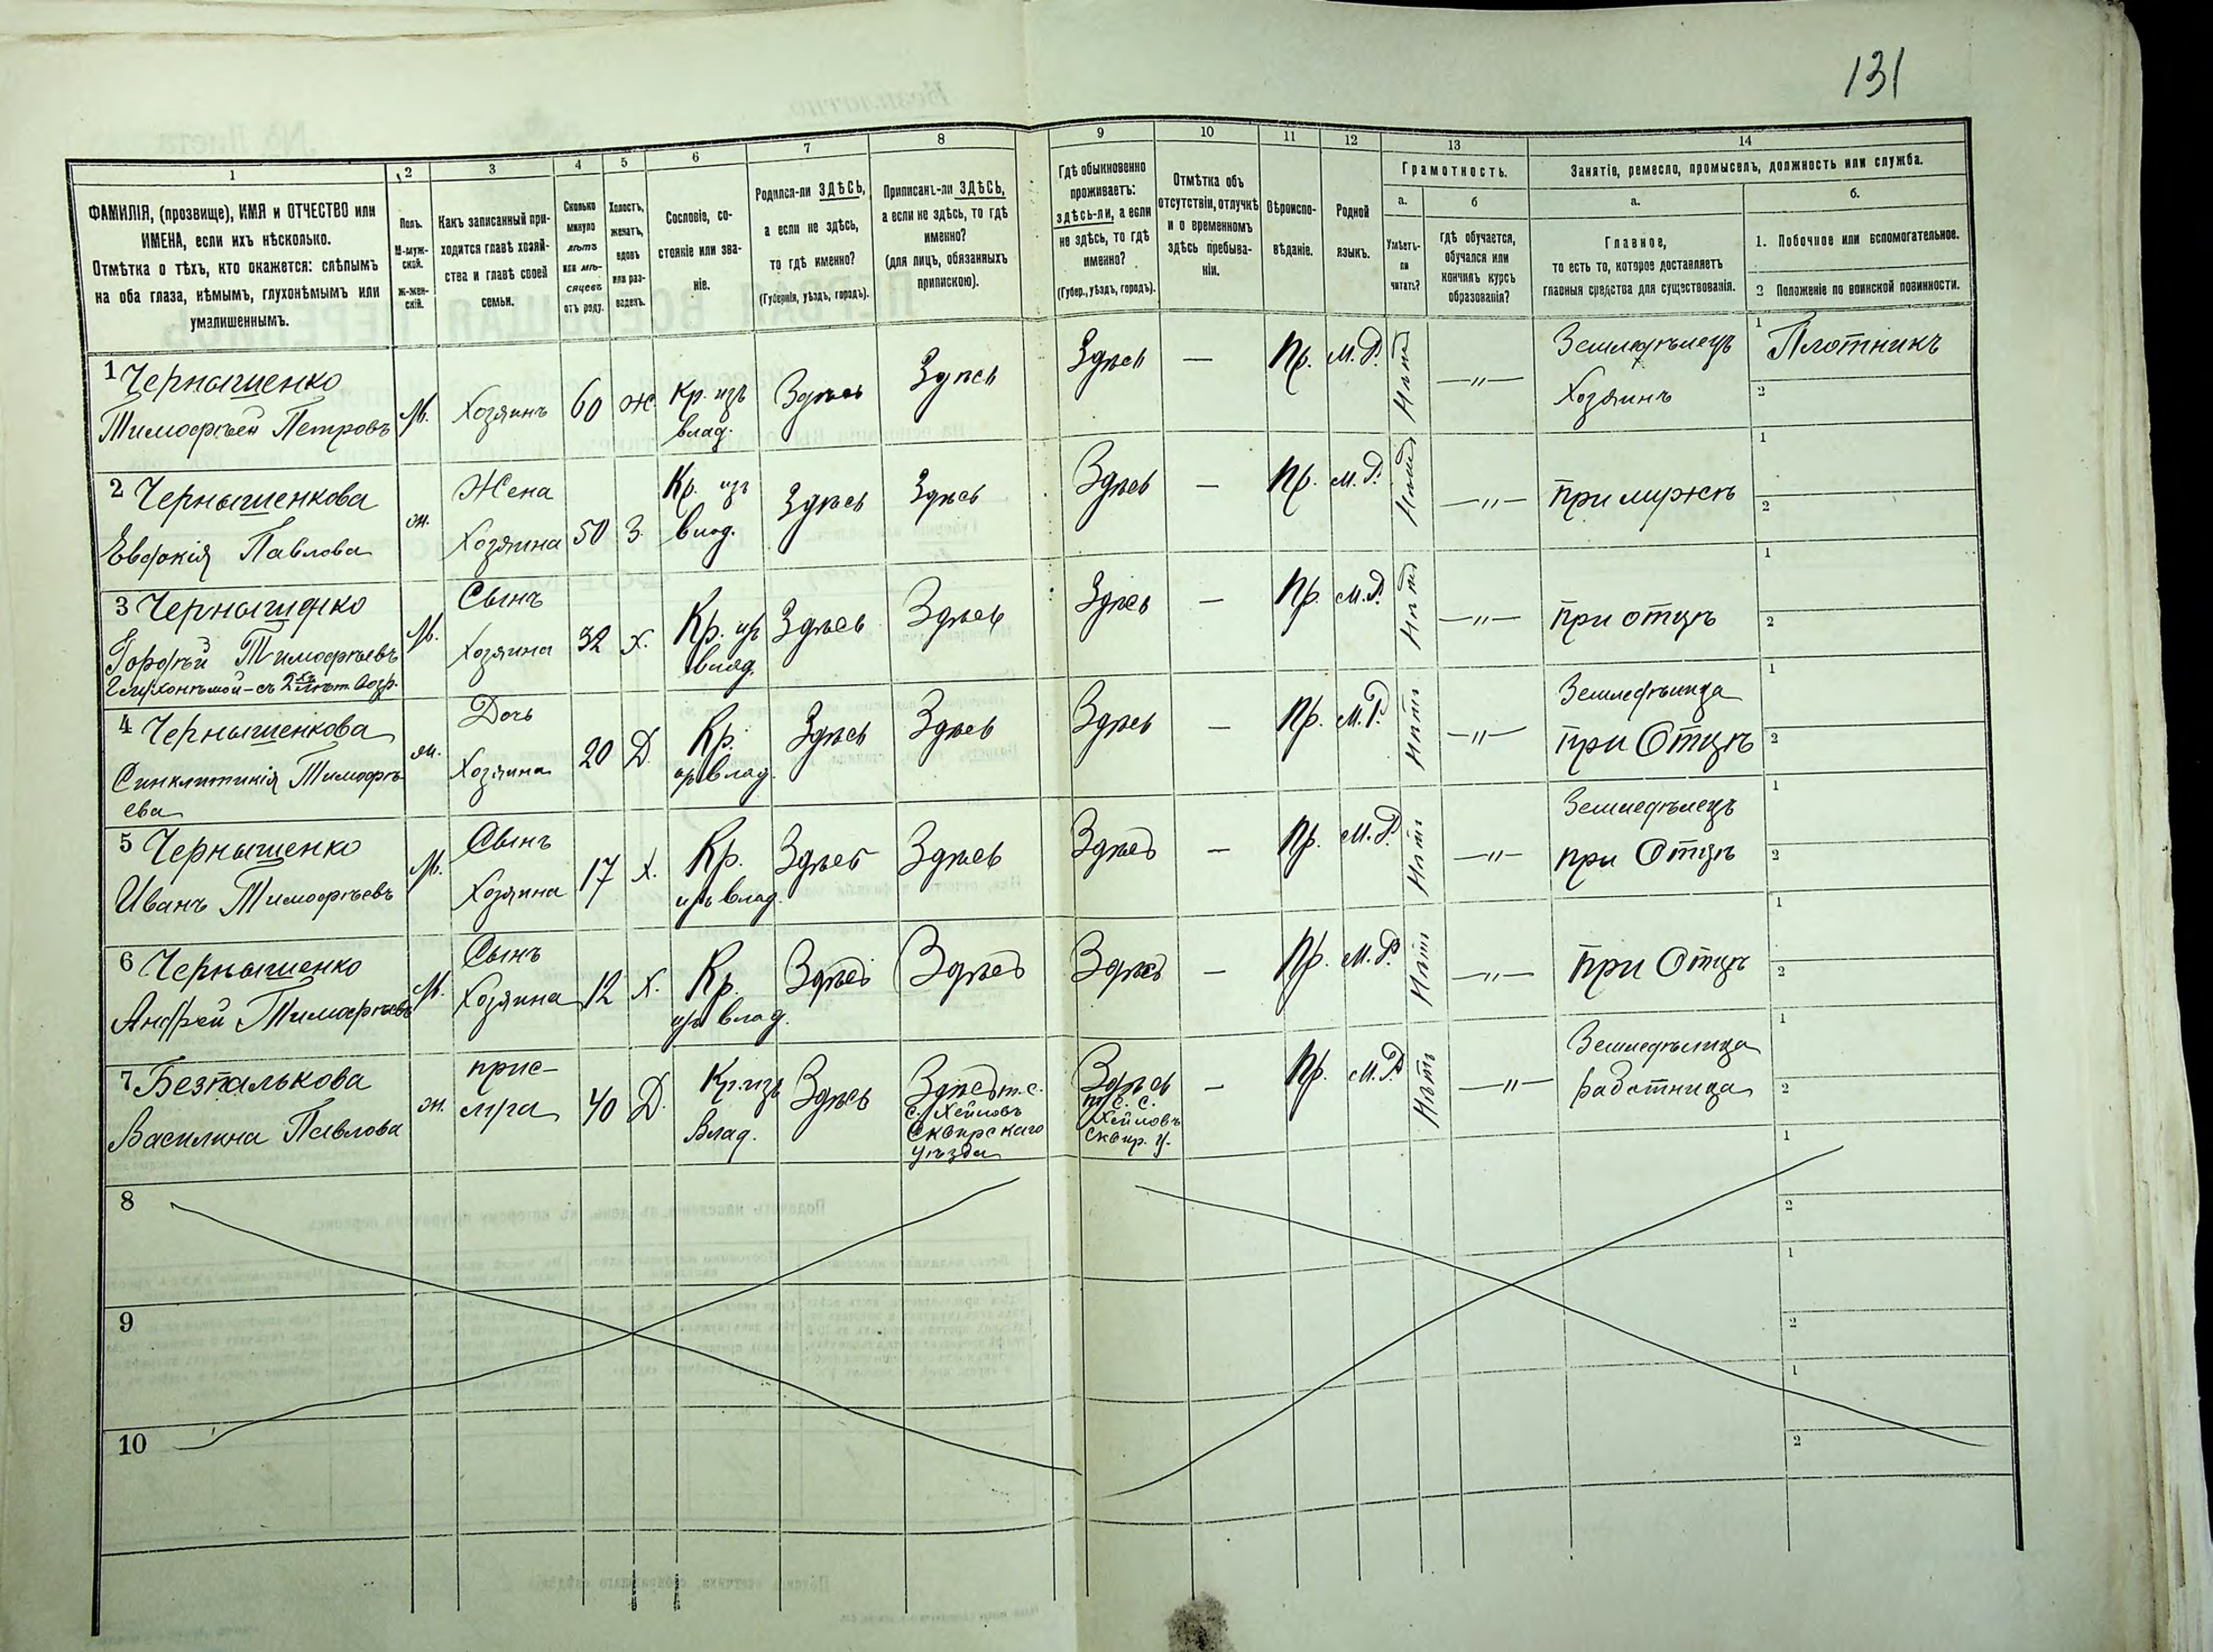 131
1 2 3 4 5 6 7 8 9 10 11 12 13 14
ФАМИЛІЯ, (прозвище), ИМЯ и ОТЧЕСТВО или
ИМЕНА, если ихъ нѣсколько.
Отмѣтка о тѣхъ, кто окажется: слѣпымъ
на оба глаза, нѣмымъ, глухонѣмымъ или
умалишеннымъ.
Полъ.
М-муж-
ской.
Ж-жен-
скій.
Какъ записанный при-
ходится главѣ хозяй-
ства и главѣ своей
семьи.
Сколько
минуло
лѣтъ
или мѣ-
сяцевъ
отъ роду.
Холостъ,
женатъ,
вдовъ
или раз-
веденъ.
Сословіе, со-
стояніе или зва-
ніе.
Родился-ли ЗДѢСЬ,
а если не здѣсь,
то гдѣ именно?
(Губернія, уѣздъ, городъ).
Приписанъ-ли ЗДѢСЬ,
а если не здѣсь, то гдѣ
именно?
(для лицъ, обязанныхъ
припискою).
Гдѣ обыкновенно
проживаетъ:
здѣсь-ли, а если
не здѣсь, то гдѣ
именно?
(Губер., уѣздъ, городъ).
Отмѣтка объ
отсутствіи, отлучкѣ
и о временномъ
здѣсь пребыва-
ніи.
Вѣроиспо-
вѣданіе.
Родной
языкъ.
Грамотность.
а.
Умѣетъ-
ли
читать?
б
Гдѣ обучается,
обучался или
кончилъ курсъ
образованія?
Занятіе, ремесло, промыселъ, должность или служба.
а.
Главное,
то есть то, которое доставляетъ
главныя средства для существованія.
б.
1. Побочное или вспомогательное.
2 Положеніе по воинской повинности.
1 Чернышенко
Тимофѣей Петровъ
М.
Хозяинъ
60
Ж
Кр. изъ
влад.
Здѣсь
Здѣсь
Здѣсь
—
Пр.
М.Р.
Нѣтъ
—"—
Земледѣлецъ
Хозяинъ
1 Плотникъ
2
2 Чернышенкова
Евдокія Павлова
ж.
Жена
Хозяина
50
З.
Кр. изъ
влад.
Здѣсь
Здѣсь
Здѣсь
—
Пр.
М.Р.
Нѣтъ
—"—
при мужѣ
1
2
3 Чернышенко
Гордѣй Тимофѣевъ
Глухонѣмой – съ 2хъ лѣтн. возр.
М.
Сынъ
Хозяина
32
Х.
Кр. изъ
влад.
Здѣсь
Здѣсь
Здѣсь
—
Пр.
М.Р.
Нѣтъ
—"—
при отцѣ
1
2
4 Чернышенкова
Синклитикія Тимофѣ-
ева
ж.
Дочь
Хозяина
20
Д.
Кр.
изъ влад.
Здѣсь
Здѣсь
Здѣсь
—
Пр.
М.Р.
Нѣтъ
—"—
Земледѣлица
при Отцѣ
1
2
5 Чернышенко
Иванъ Тимофѣевъ
М.
Сынъ
Хозяина
17
Х.
Кр.
изъ влад.
Здѣсь
Здѣсь
Здѣсь
—
Пр.
М.Р.
Нѣтъ
—"—
Земледѣлецъ
при Отцѣ
1
2
6 Чернышенко
Андрей Тимофѣевъ
М.
Сынъ
Хозяина
12
Х.
Кр.
изъ влад.
Здѣсь
Здѣсь
Здѣсь
—
Пр.
М.Р.
Нѣтъ
—"—
при Отцѣ
1
2
7 Безпалькова
Василина Павлова
ж.
прис-
луга
40
Д.
Кр. изъ
Влад.
Здѣсь
Здѣсь т.е.
с. Хейловъ
Сквирскаго
уѣзда
Здѣсь
т.е. с.
Хейловъ
Сквир. у.
—
Пр.
М.Р.
Нѣтъ
—"—
Земледѣлица
работница
1
2
8
1
2
9
1
2
10
1
2